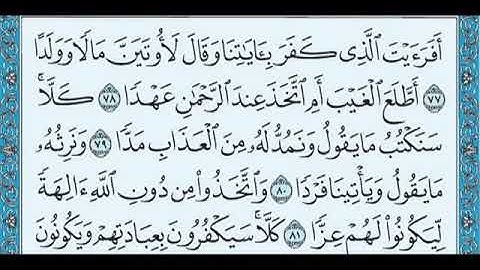 أَفَرَءَيْتَ الَّذِى كَفَرَ بِـَٔايَـٰتِنَا وَقَالَ لَأُوتَيَنَّ مَالًا وَوَلَدًا
٧٧ أَطَّلَعَ الْغَيْبَ أَمِ اتَّخَذَ عِندَ الرَّحْمَـٰنِ عَهْدًا ٧٨ كَلَّا ۚ
سَنَكْتُبُ مَا يَقُولُ وَنَمُدُّ لَهُۥ مِنَ الْعَذَابِ مَدًّا ٧٩ وَنَرِثُهُۥ
مَا يَقُولُ وَيَأْتِينَا فَرْدًا ٨٠ وَاتَّخَذُوا۟ مِن دُونِ اللَّهِ ءَالِهَةً
لِّيَكُونُوا۟ لَهُمْ عِزًّا ٨١ كَلَّا ۚ سَيَكْفُرُونَ بِعِبَادَتِهِمْ وَيَكُونُونَ